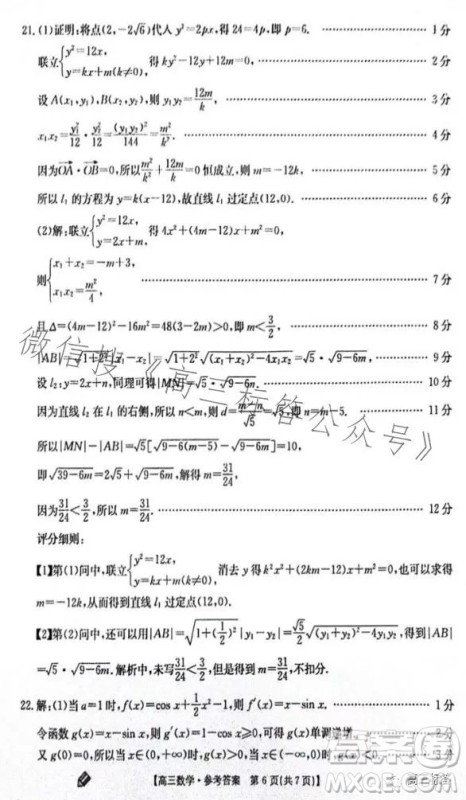 21.(1)证明:将点(2,-2√6)代入 y²=2px,得 24=4p,即 p=6. …… 1分
联立{y²=12x, y=kx+m(k≠0), 得 ky²-12y+12m=0. …… 2分
设 A(x₁,y₁),B(x₂,y₂),则 y₁y₂=12m/k, …… 3分
x₁x₂=y₁²/12·y₂²/12=(y₁y₂)²/144=m²/k². …… 4分
因为OA→·OB→=0,所以m²/k²+12m/k=0恒成立,则 m=-12k, …… 5分
所以 l₁ 的方程为 y=k(x-12),故直线 l₁ 过定点(12,0). …… 6分
(2)解:联立{y²=12x, y=2x+m, 得 4x²+(4m-12)x+m²=0,
则{x₁+x₂=-m+3, x₁x₂=m²/4, …… 7分
且 Δ=(4m-12)²-16m²=48(3-2m)>0,即 m<3/2, …… 8分
|AB|=√(1+2²)|x₁-x₂|=√(1+2²)√((x₁+x₂)²-4x₁x₂)=√5·√(9-6m). …… 9分
设 l₂:y=2x+n,同理可得|MN|=√5·√(9-6n). …… 10分
因为直线 l₂ 在 l₁ 的右侧,所以 n<m,则 d=(m-n)/√5=√5,即 n=m-5. …… 11分
所以|MN|-|AB|=√5[√(9-6(m-5))-√(9-6m)]=10,
即√(39-6m)=2√5+√(9-6m),所以 m=31/24.
因为31/24<3/2,所以 m=31/24. …… 12分
评分细则:
【1】第(1)问中,联立{y²=12x, y=kx+m(k≠0), 消去 y 得 k²x²+(2km-12)x+m²=0,也可以求得
m=-12k,从而得到直线 l₁ 过定点(12,0).
【2】第(2)问中,还可以用|AB|=√(1+(1/2)²)|y₁-y₂|=√5/2√((y₁+y₂)²-4y₁y₂),得到|AB|
=√5·√(9-6m).解析中,未写31/24<3/2,但是得到 m=31/24,不扣分.
22.解:(1)当 a=1 时,f(x)=cos x+1/2x²-1,则 f′(x)=x-sin x. …… 1分
令函数 g(x)=x-sin x,则 g′(x)=1-cos x≥0,可得 g(x)单调递增. …… 2分
又 g(0)=0,所以当 x∈(0,+∞)时,g(x)>0;当 x∈(-∞,0)时,g(x)<0,
【高三数学·参考答案 第 6 页(共 7 页)】
微信搜《高三标答公众号》